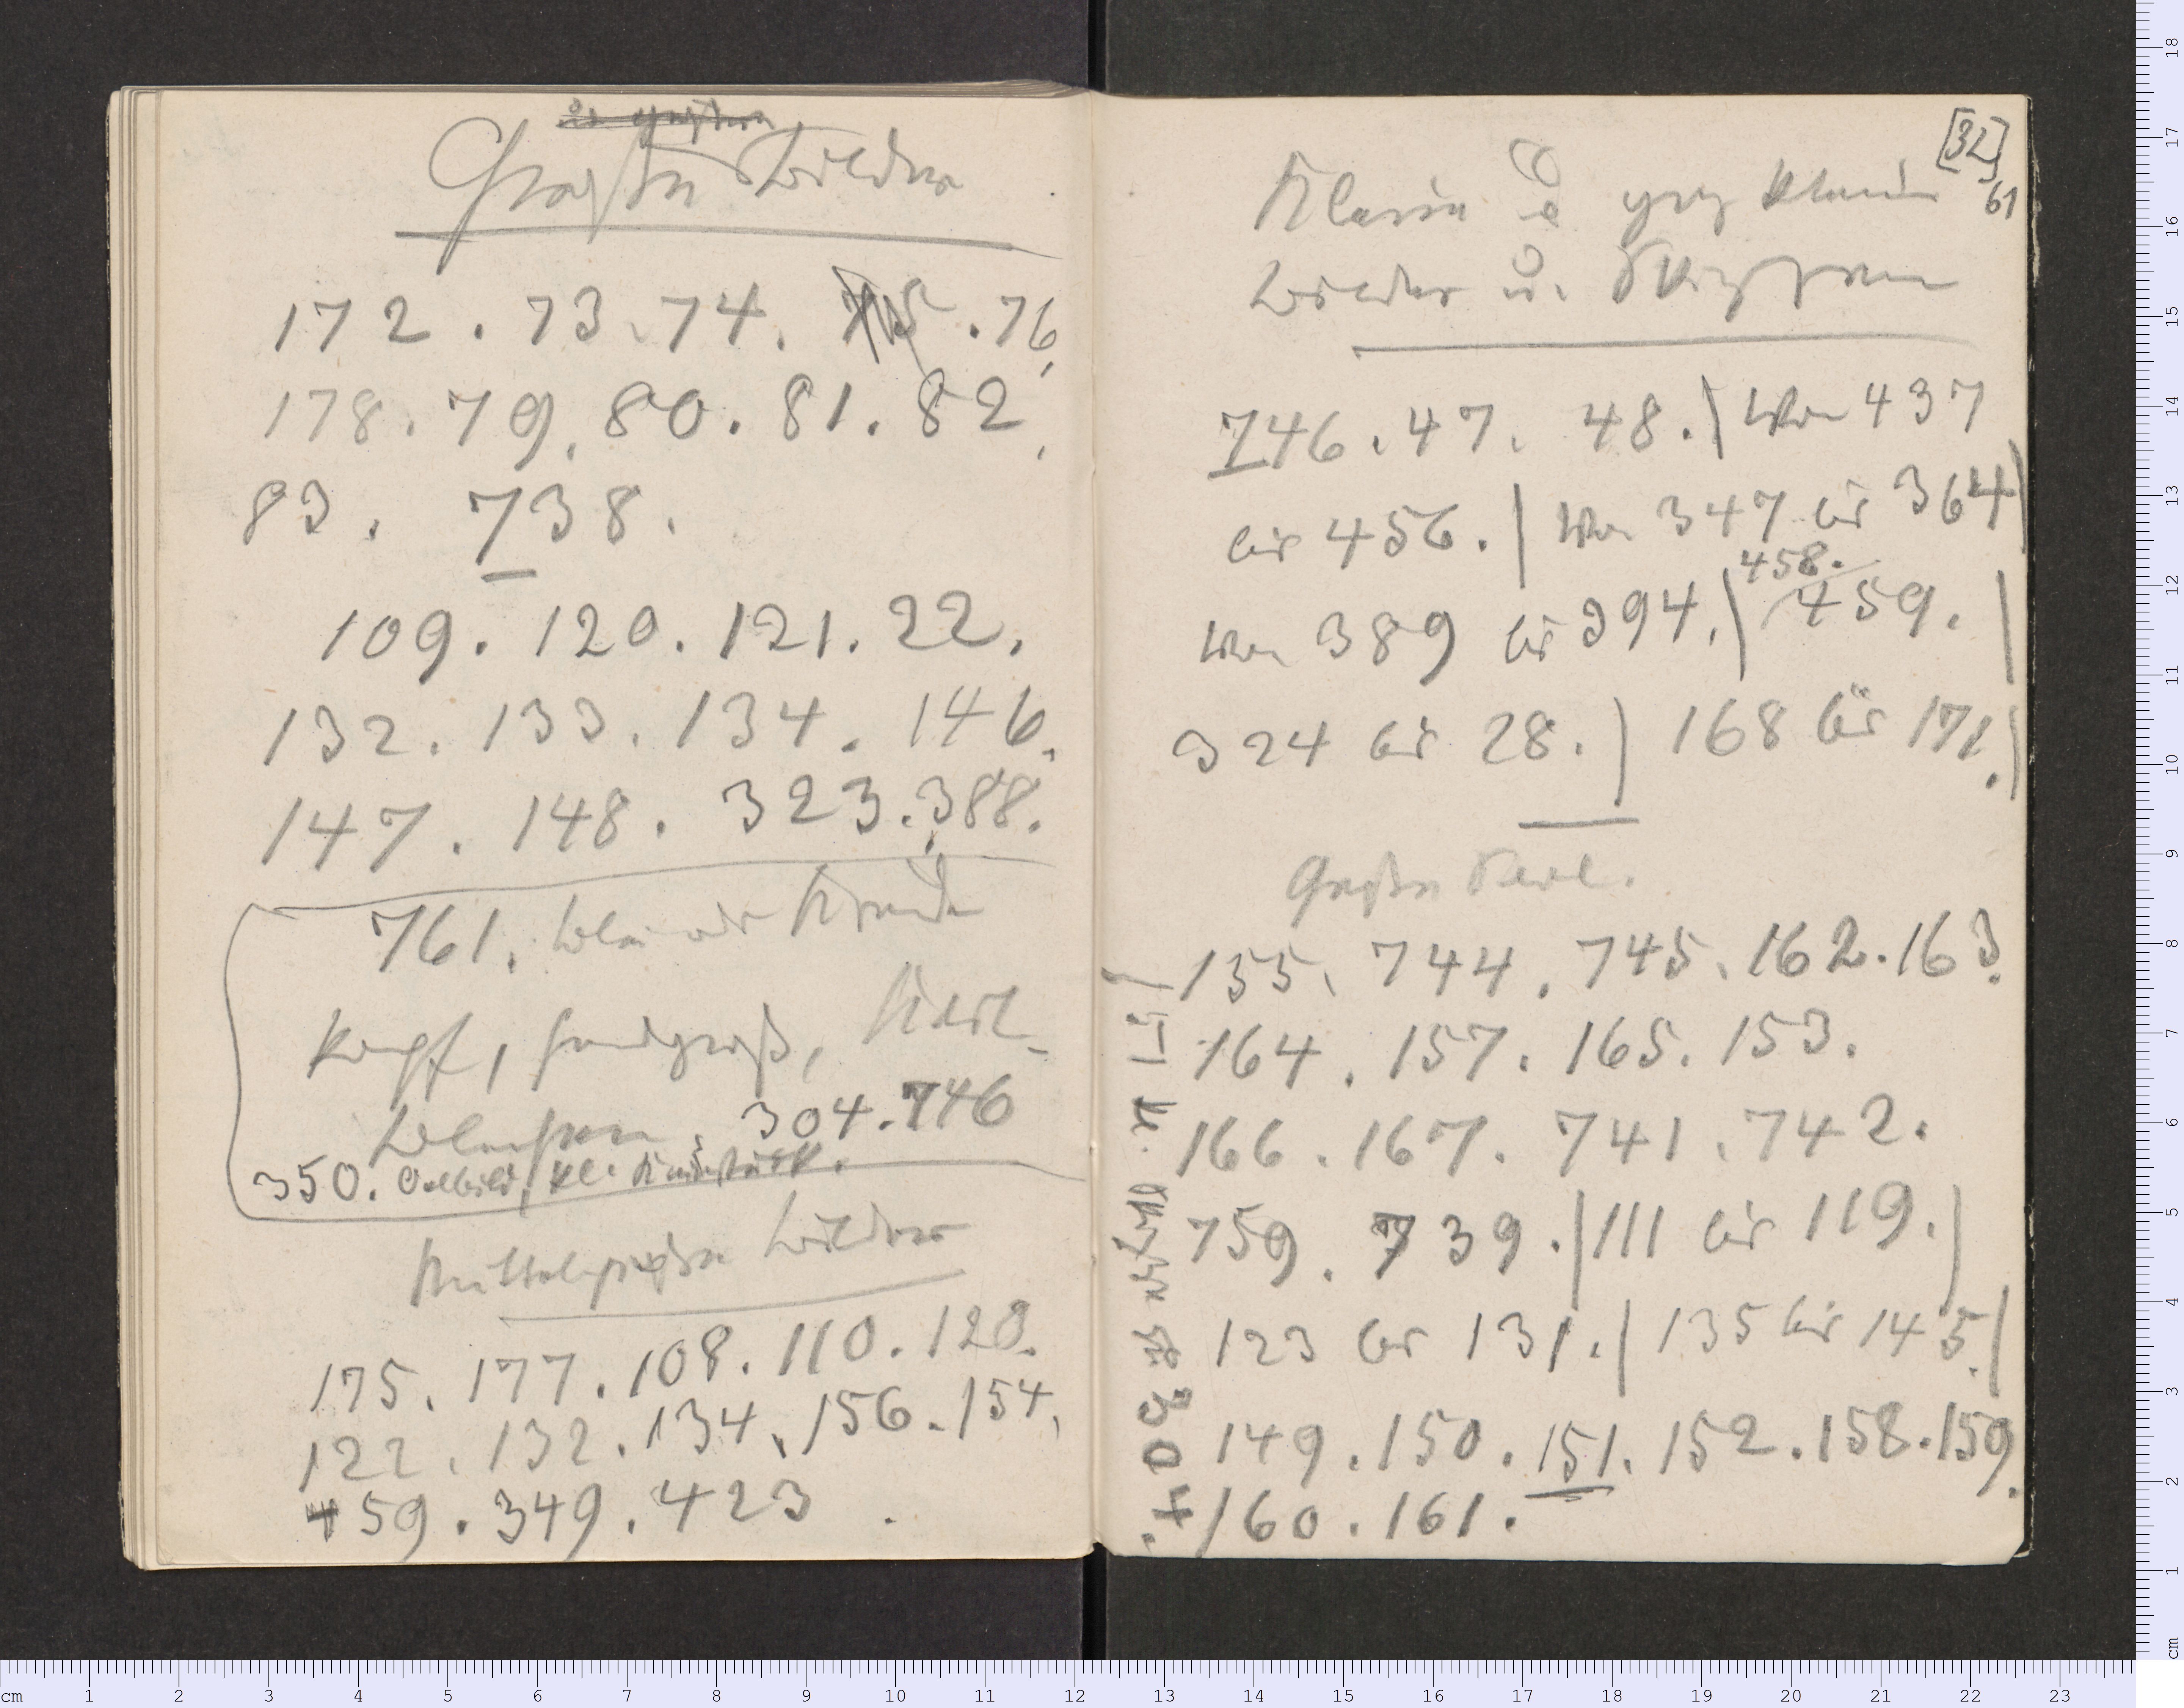 Große Bilder
172 . 73 . 74 . 75 . 76,
178 . 79 . 80 . 81 . 82,
83 . 738 .
109 . 120 . 121 . 22 .
132 . 133 . 134 . 146.
147 . 148 . 323 . 388.
761. Blei oder Kreide
Kopf, handgroß,
304 . 746
350. Oelbild, kl.
Mittelgroße Bilder
175 . 177 . 108 . 110 . 120.
122 . 132 . 134 . 156 . 154.
459 . 349 . 423 .
[32]
61
Kleine u ganz kleine
Bilder u. Skizzen
746 . 47 . 48 . | Von 437
bis 456 . | Von 347 bis 364 |
458.
Von 389 bis 394 . | 459 . |
324 bis 28 . | 168 bis 171. |
Große
155 . 744 . 745 . 162 . 163.
164 . 157 . 165 . 153 .
166 . 167 . 741 . 742 .
759 . 739 . | 111 bis 119 . |
123 bis 131 . | 135 bis 145. |
149 . 150 . 151 . 152 . 158 . 159.
160 . 161 .